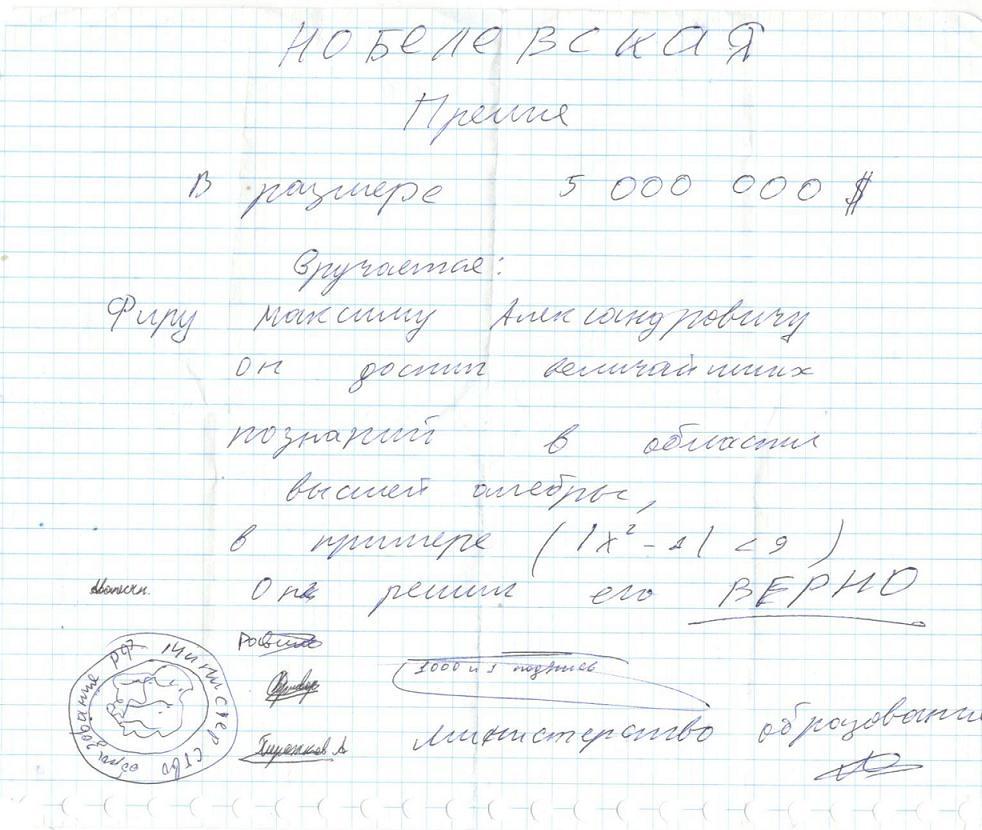 НОБЕЛЕВСКАЯ
Премия
В размере 5 000 000 $
Вручается:
Фиру Максиму Александровичу
он достиг величайших
познаний в области
высшей алгебры,
в примере ( |x² - 1| < 9 )
Он решил его ВЕРНО
1000 и 1 подпись
Министерство образование РФ
Пирожков А
Министерство образования